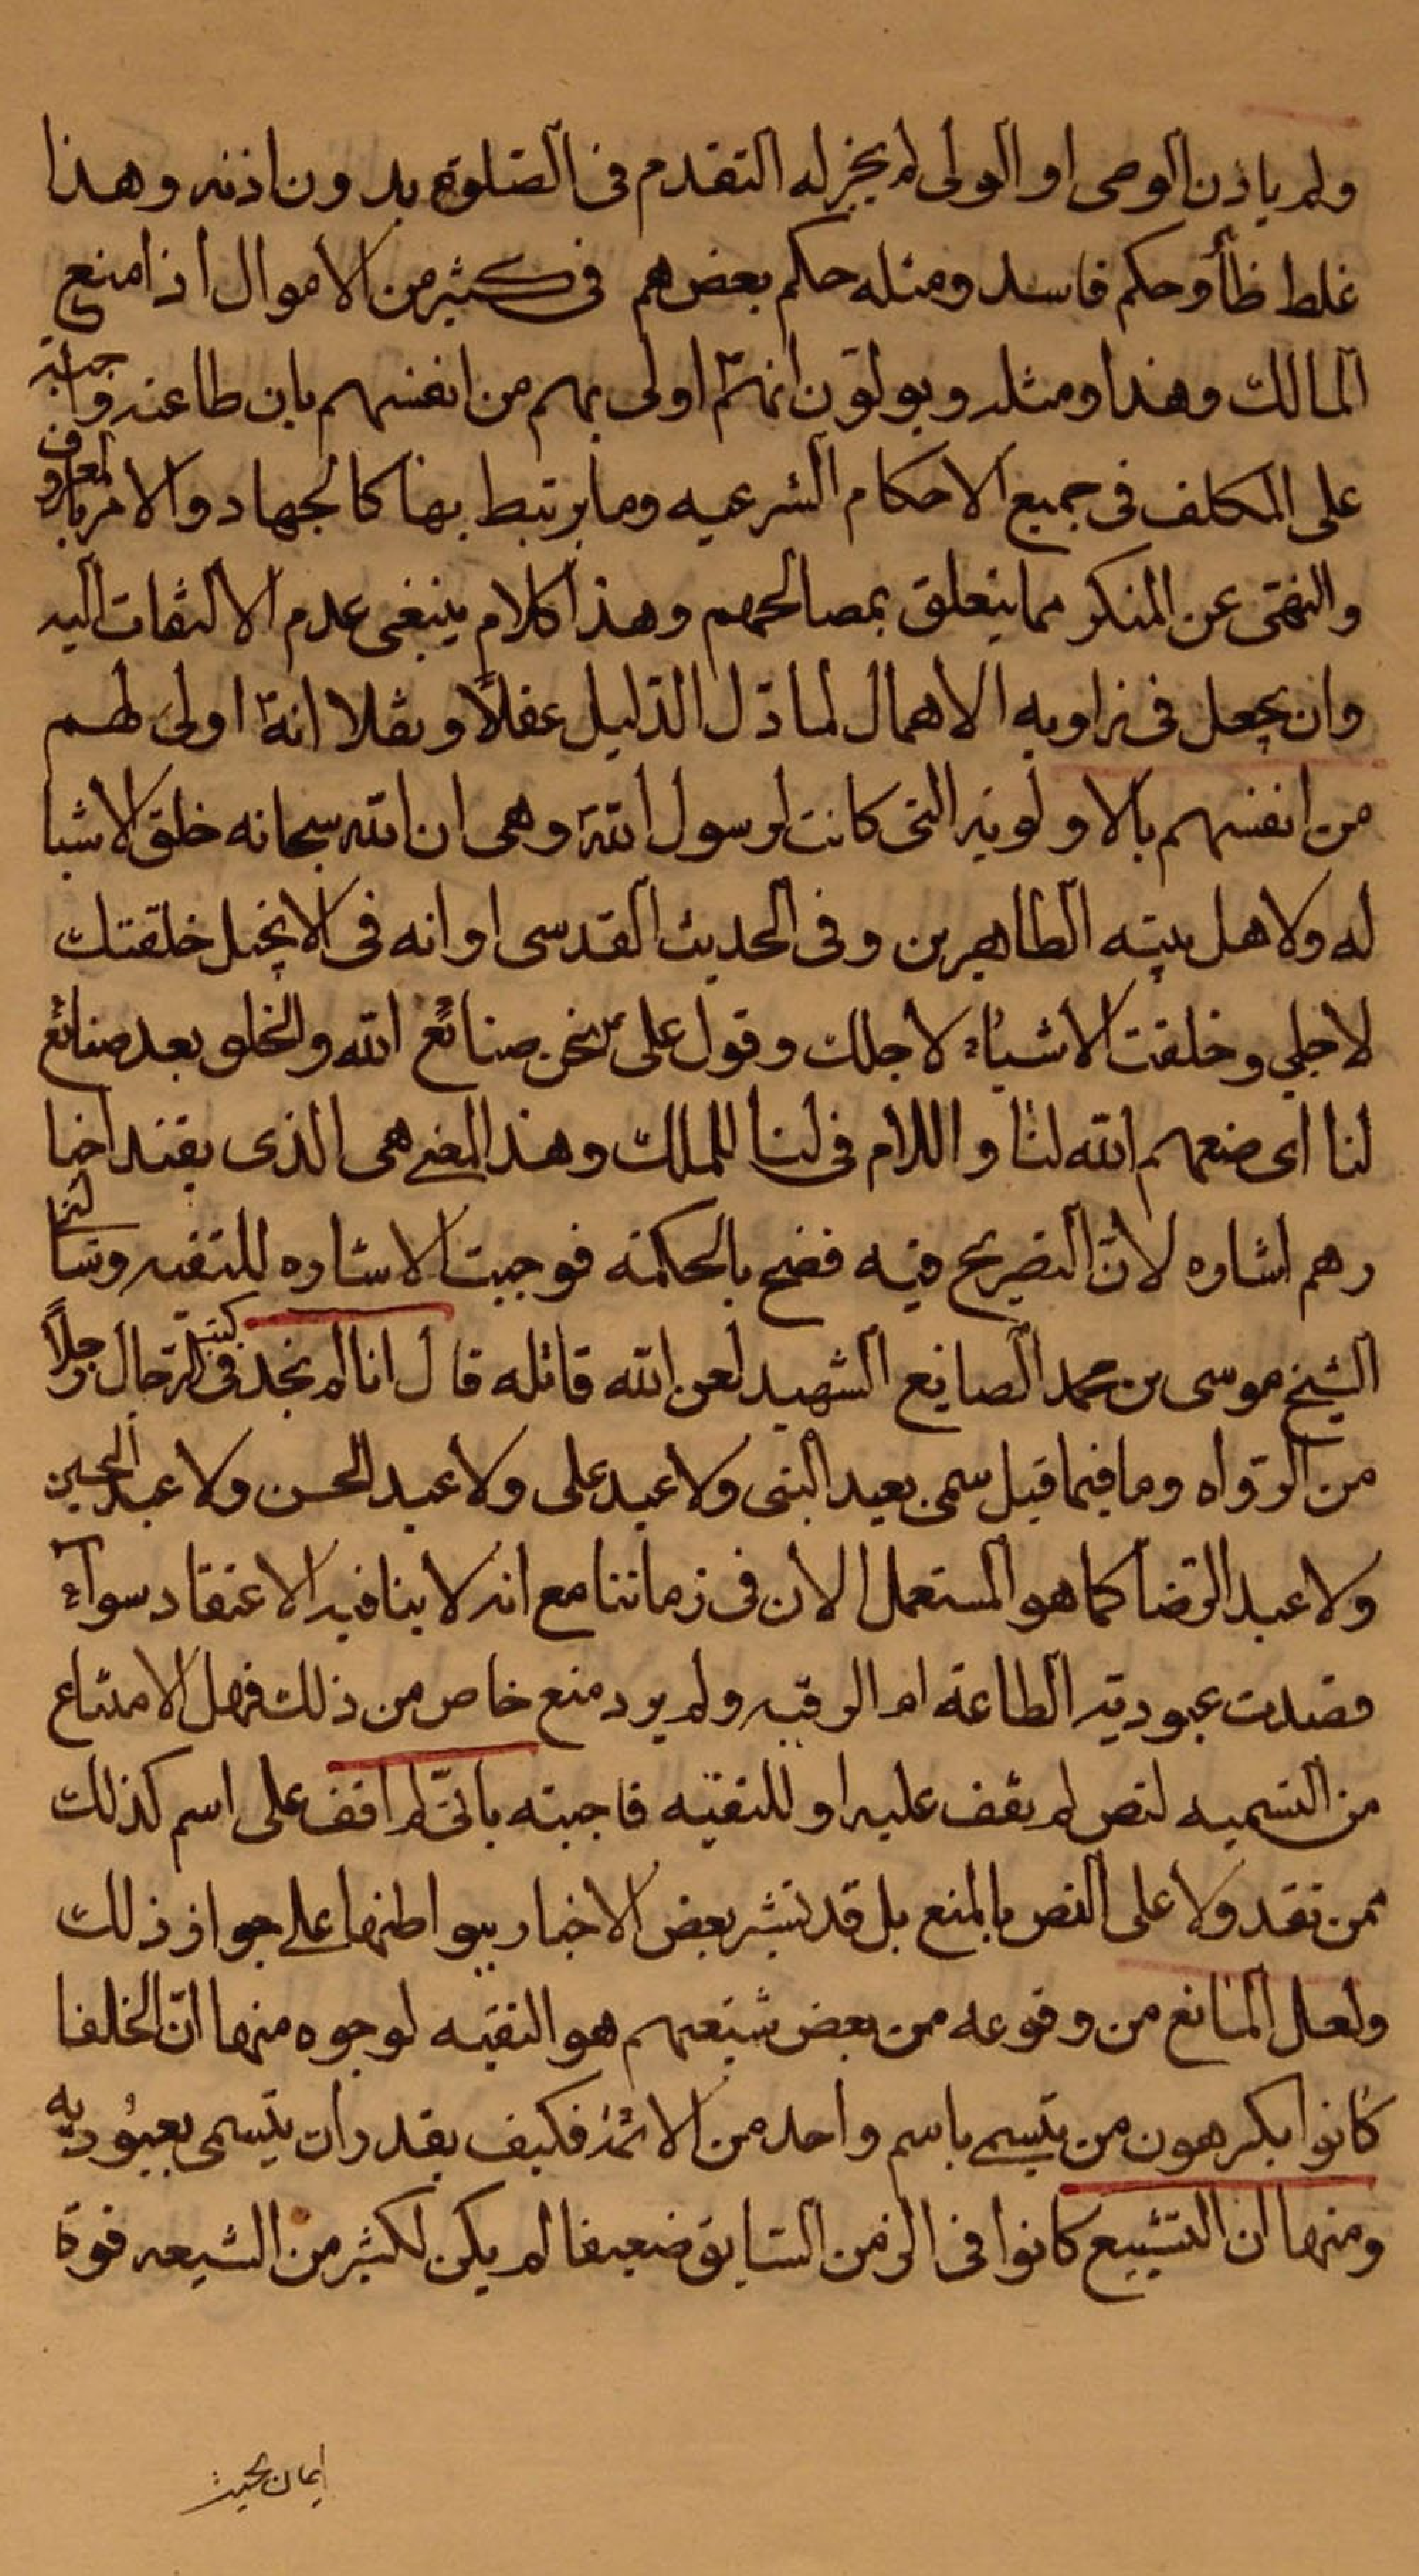 ولم ياذن الوصى او الولى لم يجز له التقدم فى الصلوة بدون اذنه وهذا
غلط ظأ وحكم فاسد ومثله حكم بعضهم فى كثير من الاموال اذا منع
المالك وهذا ومثله ويولون انهم اولى بهم من انفسهم بان طاعته واجبه
على المكلف فى جميع الاحكام الشرعيه وما يرتبط بها كالجهاد والامر بالمعروف
والنهى عن المنكر مما يتعلق بمصالحهم وهذا كلام ينبغى عدم الالتفات اليه
وان يجعل فى زاويه الاهمال لما دل الدليل عقلاً ونقلا انه اولى لهم
من انفسهم بالاولويه التى كانت لرسول الله وهى ان الله سبحانه خلق الاشيا
له ولاهل بيته الطاهرين وفى الحديث القدسى او انه فى الانجيل خلقتك
لاجلى وخلقت الاشياء لاجلك وقول على نحن صنائع الله والخلق بعد صنائع
لنا اى صنعهم الله لنا واللام فى لنا للملك وهذا المعنى هى الذى اخبا
رهم اشاره لان التصريح فيه فضح بالحكمة فوجبت الاشاره للتقيه وسألنا
الشيخ موسى بن محمد الصايغ الشهيد لعن الله قاتله قال انا لم نجد فى كتب الرجال رجلاً
من الرواه وما فيما قبل سمى بعبد النبى ولا عبد على ولا عبد الحسن ولا عبد الحسين
ولا عبد الرضا كما هو المستعمل الان فى زماننا مع انه لا ينافيه الاعتقاد سواء
قصدت عبوديته الطاعة ام الرقيه ولم يرد منع خاص من ذلك فهل الامتناع
من التسميه لنص لم نقف عليه او للتقيه فاجبته بانى لم اقف على اسم كذلك
ممن تقد ولا على النص بالمنع بل قد تشير بعض الاخبار ببواطنها على جواز ذلك
ولعل المانع من وقوعه من بعض شيعتهم هو التقيه لوجوه منها ان الخلفا
كانوا يكرهون من يتسمى باسم واحد من الائمة فكيف يقدر ان يتسمى بعبوديه
ومنها ان التشيع كانوا فى الزمن السابق ضعيفا لم يكن لكثير من الشيعه قوة
ايمان بحيث